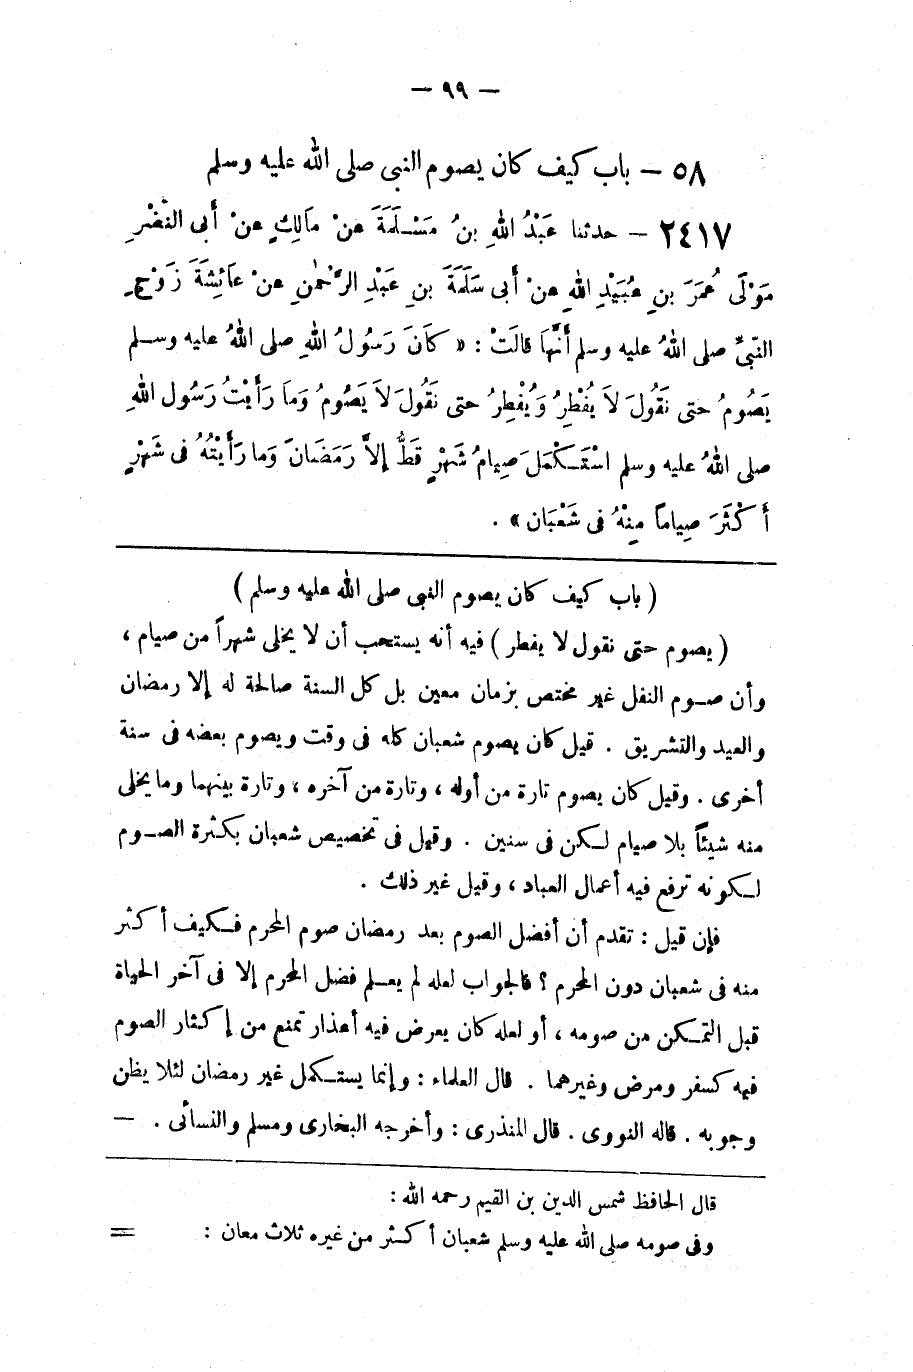 — ٩٩ —
٥٨ — باب كيف كان يصوم النبى صلى الله عليه وسلم
٢٤١٧ — حدثنا عَبْدُ اللهِ بنُ مَسْلَمَةَ عنْ مَالِكٍ عنْ أَبى النَّضْرِ
مَوْلَى عُمَرَ بنِ عُبَيْدِ اللهِ عنْ أَبى سَلَمَةَ بنِ عَبْدِ الرَّحْمٰنِ عنْ عَائِشَةَ زَوْجِ
النَّبىِّ صلى اللهُ عليه وسلم أَنَّهَا قالَتْ : « كَانَ رَسُولُ اللهِ صلى اللهُ عليه وسلم
يَصُومُ حتى نَقُولَ لاَ يُفْطِرُ وَيُفْطِرُ حتى نَقُولَ لاَ يَصُومُ وَمَا رَأَيْتُ رَسُول اللهِ
صلى اللهُ عليه وسلم اسْتَكْمَلَ صِيامُ شَهْرٍ قَطُّ إِلاَّ رَمَضَانَ وَما رَأَيْتُهُ فى شَهْرٍ
أَكْثَرَ صِياماً مِنْهُ فى شَعْبَان » .
( باب كيف كان يصوم النبى صلى الله عليه وسلم )
( يصوم حتى نقول لا يفطر ) فيه أنه يستحب أن لا يخلى شهراً من صيام ،
وأن صوم النفل غير مختص بزمان معين بل كل السنة صالحة له إلا رمضان
والعيد والتشريق . قيل كان يصوم شعبان كله فى وقت ويصوم بعضه فى سنة
أخرى . وقيل كان يصوم تارة من أوله ، وتارة من آخره ، وتارة بينهما وما يخلى
منه شيئاً بلا صيام لكن فى سنين . وقيل فى تخصيص شعبان بكثرة الصوم
لكونه ترفع فيه أعمال العباد ، وقيل غير ذلك .
فإن قيل : تقدم أن أفضل الصوم بعد رمضان صوم المحرم فكيف أكثر
منه فى شعبان دون المحرم ؟ فالجواب لعله لم يعلم فضل المحرم إلا فى آخر الحياة
قبل التمكن من صومه ، أو لعله كان يعرض فيه أعذار تمنع من إكثار الصوم
فيه كسفر ومرض وغيرهما . قال العلماء : وإنما يستكمل غير رمضان لئلا يظن
وجوبه . قاله النووى . قال المنذرى : وأخرجه البخارى ومسلم والنسائى . —
قال الحافظ شمس الدين بن القيم رحمه الله :
وفى صومه صلى الله عليه وسلم شعبان أكثر من غيره ثلاث معان : =